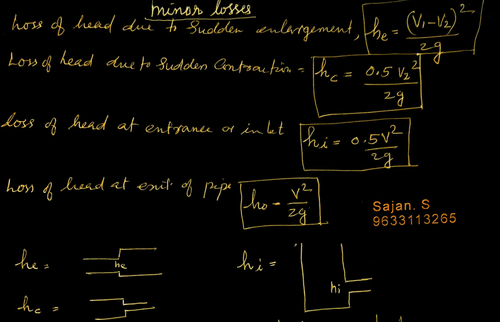 minor losses
Loss of head due to Sudden enlargement, he = (V₁-V₂)²/2g
Loss of head due to Sudden Contraction = hc = 0.5 V₂²/2g
loss of head at entrance or inlet hi = 0.5V²/2g
Loss of head at exit of pipe ho = V²/2g
Sajan. S
9633113265
he = he
hi = hi
hc =